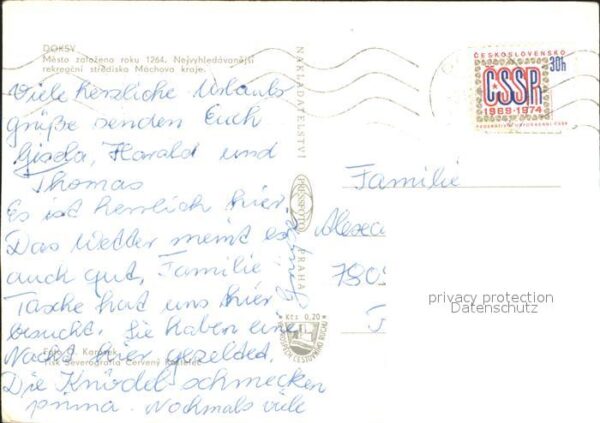 DOKSY
Město založeno roku 1264. Nejvyhledávanější
rekreační středisko Máchova kraje.
Viele herzliche Urlaubs
grüße senden Euch
Gisela, Harald und
Thomas
Es ist herrlich hier
Das Wetter meint es
auch gut, Familie
Tasche hat uns hier
besucht. Sie haben eine
Nacht hier gezeltet.
Die Knödel schmecken
prima. Nochmals viele
Grüße
Foto J. Kará
Tisk Severografia Červený Kostelec
NAKLADATELSTVÍ
PRESSFOTO
PRAHA
Kčs 0,20
ČESKOSLOVENSKO
30h
ČSSR
1968-1974
FEDERATIVNÍ USPOŘÁDÁNÍ ČSSR
Familie
privacy protection
Datenschutz